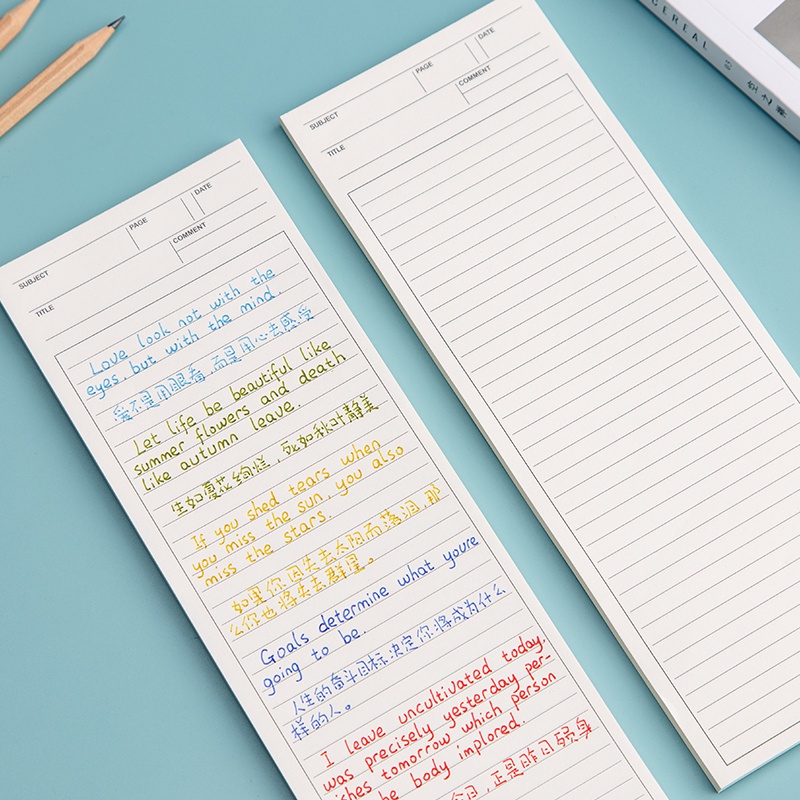 SUBJECT
PAGE
DATE
TITLE
COMMENT
Love look not with the
eyes, but with the mind.
爱不是用眼看,而是用心去感受
Let life be beautiful like
summer flowers and death
like autumn leave.
生如夏花绚烂,死如秋叶静美
If you shed tears when
you miss the sun, you also
miss the stars.
如果你因失去太阳而落泪,那
么你也将失去群星。
Goals determine what youre
going to be.
人生的奋斗目标决定你将成为什么
样的人。
I leave uncultivated today,
was precisely yesterday per-
ishes tomorrow which person
he body implored.
今日,正是昨日殒身
SUBJECT
PAGE
DATE
TITLE
COMMENT
CEREAL